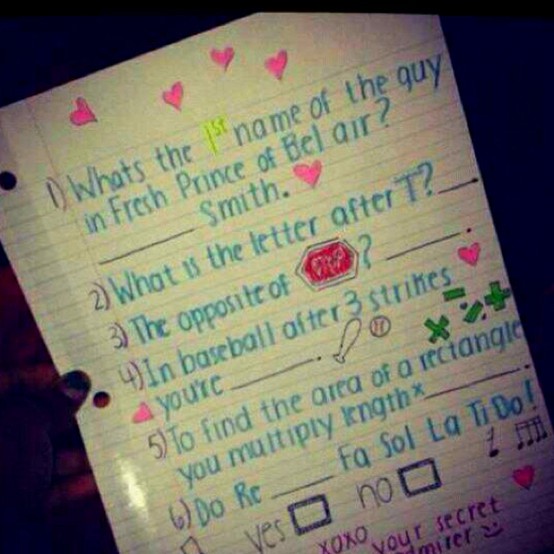 1) Whats the 1st name of the guy
in Fresh Prince of Bel air?
________ Smith.
2) What is the letter after T? ___
3) The opposite of STOP? ______.
4) In baseball after 3 strikes
you're ________.
5) To find the area of a rectangle
you multiply length x ________.
6) Do Re _____ Fa Sol La Ti Do!
yes no
xoxo your secret
admirer